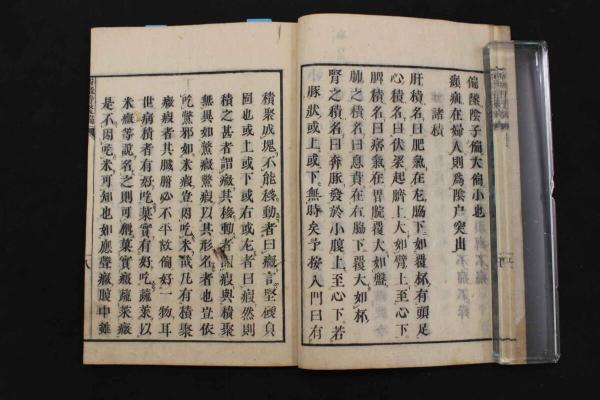 偏墜陰子偏大偏小也
㿗疝在婦人則為陰戶突出
諸積
肝積名曰肥氣在左脇下如覆杯有頭足
心積名曰伏梁起臍上大如臂上至心下
脾積名曰痞氣在胃脘覆大如盤
肺之積名曰息賁在右脇下覆大如杯
腎之積名曰奔豚發於小腹上至心下若
豚狀或上或下無時矣予按入門曰有
積聚成塊不能移動者曰癥言堅硬負
固也或上或下或右或左者曰瘕然則
積之甚者謂癥其移動者謂瘕與積聚
無異如鱉癥鱉瘕以其形名者也豈依
吃鱉邪如米瘕豈因吃米哉凡有積聚
癥瘕者其臟腑必不平故偏好一物耳
世病積者有好吃菓實有好吃蔬菜以
米癥等說名之則可謂菓實癥蔬菜癥
是不因吃米可知也如應聲癥腹中雖